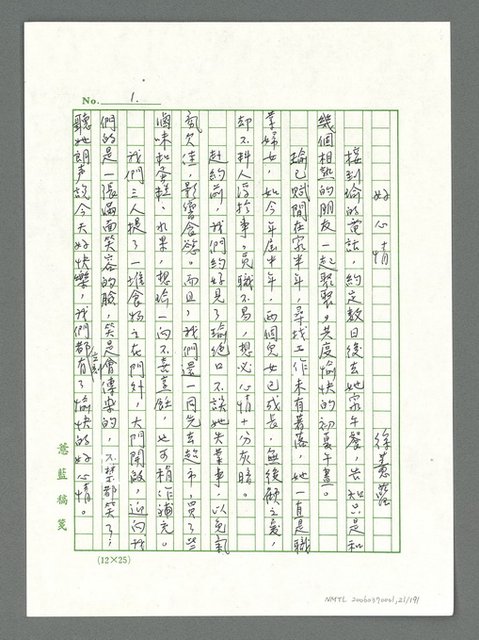 No. 1.
好心情
徐蕙藍
接到瑜的電話,約定數日後去她家午餐,也知只是和
幾個相熟的朋友一起聚聚,共度愉快的初夏午晝。
瑜已賦閒在家半年,尋找工作未有著落,她一直是職
業婦女,如今年屆中年,兩個兒女已成長,無後顧之憂,
卻不料人浮於事,覓職不易,想必心情十分灰暗。
赴約前,我們約好見了瑜絕口不談她失業事,以免氣
氛欠佳,影響食慾。而且,我們還一同先去超市,買了些
滷味和蛋糕、水果,想瑜一向不喜烹飪,也可稍作補充。
我們三人提了一堆食物立在門外,大門開啟,迎向我
們的是一張滿面笑容的臉,笑是會傳染的,不禁都笑了;
聽她朗声說今天好快樂,我們都立刻有了愉快的好心情。
蕙藍稿箋
(12×25)
NMTL 20060370001,21/191